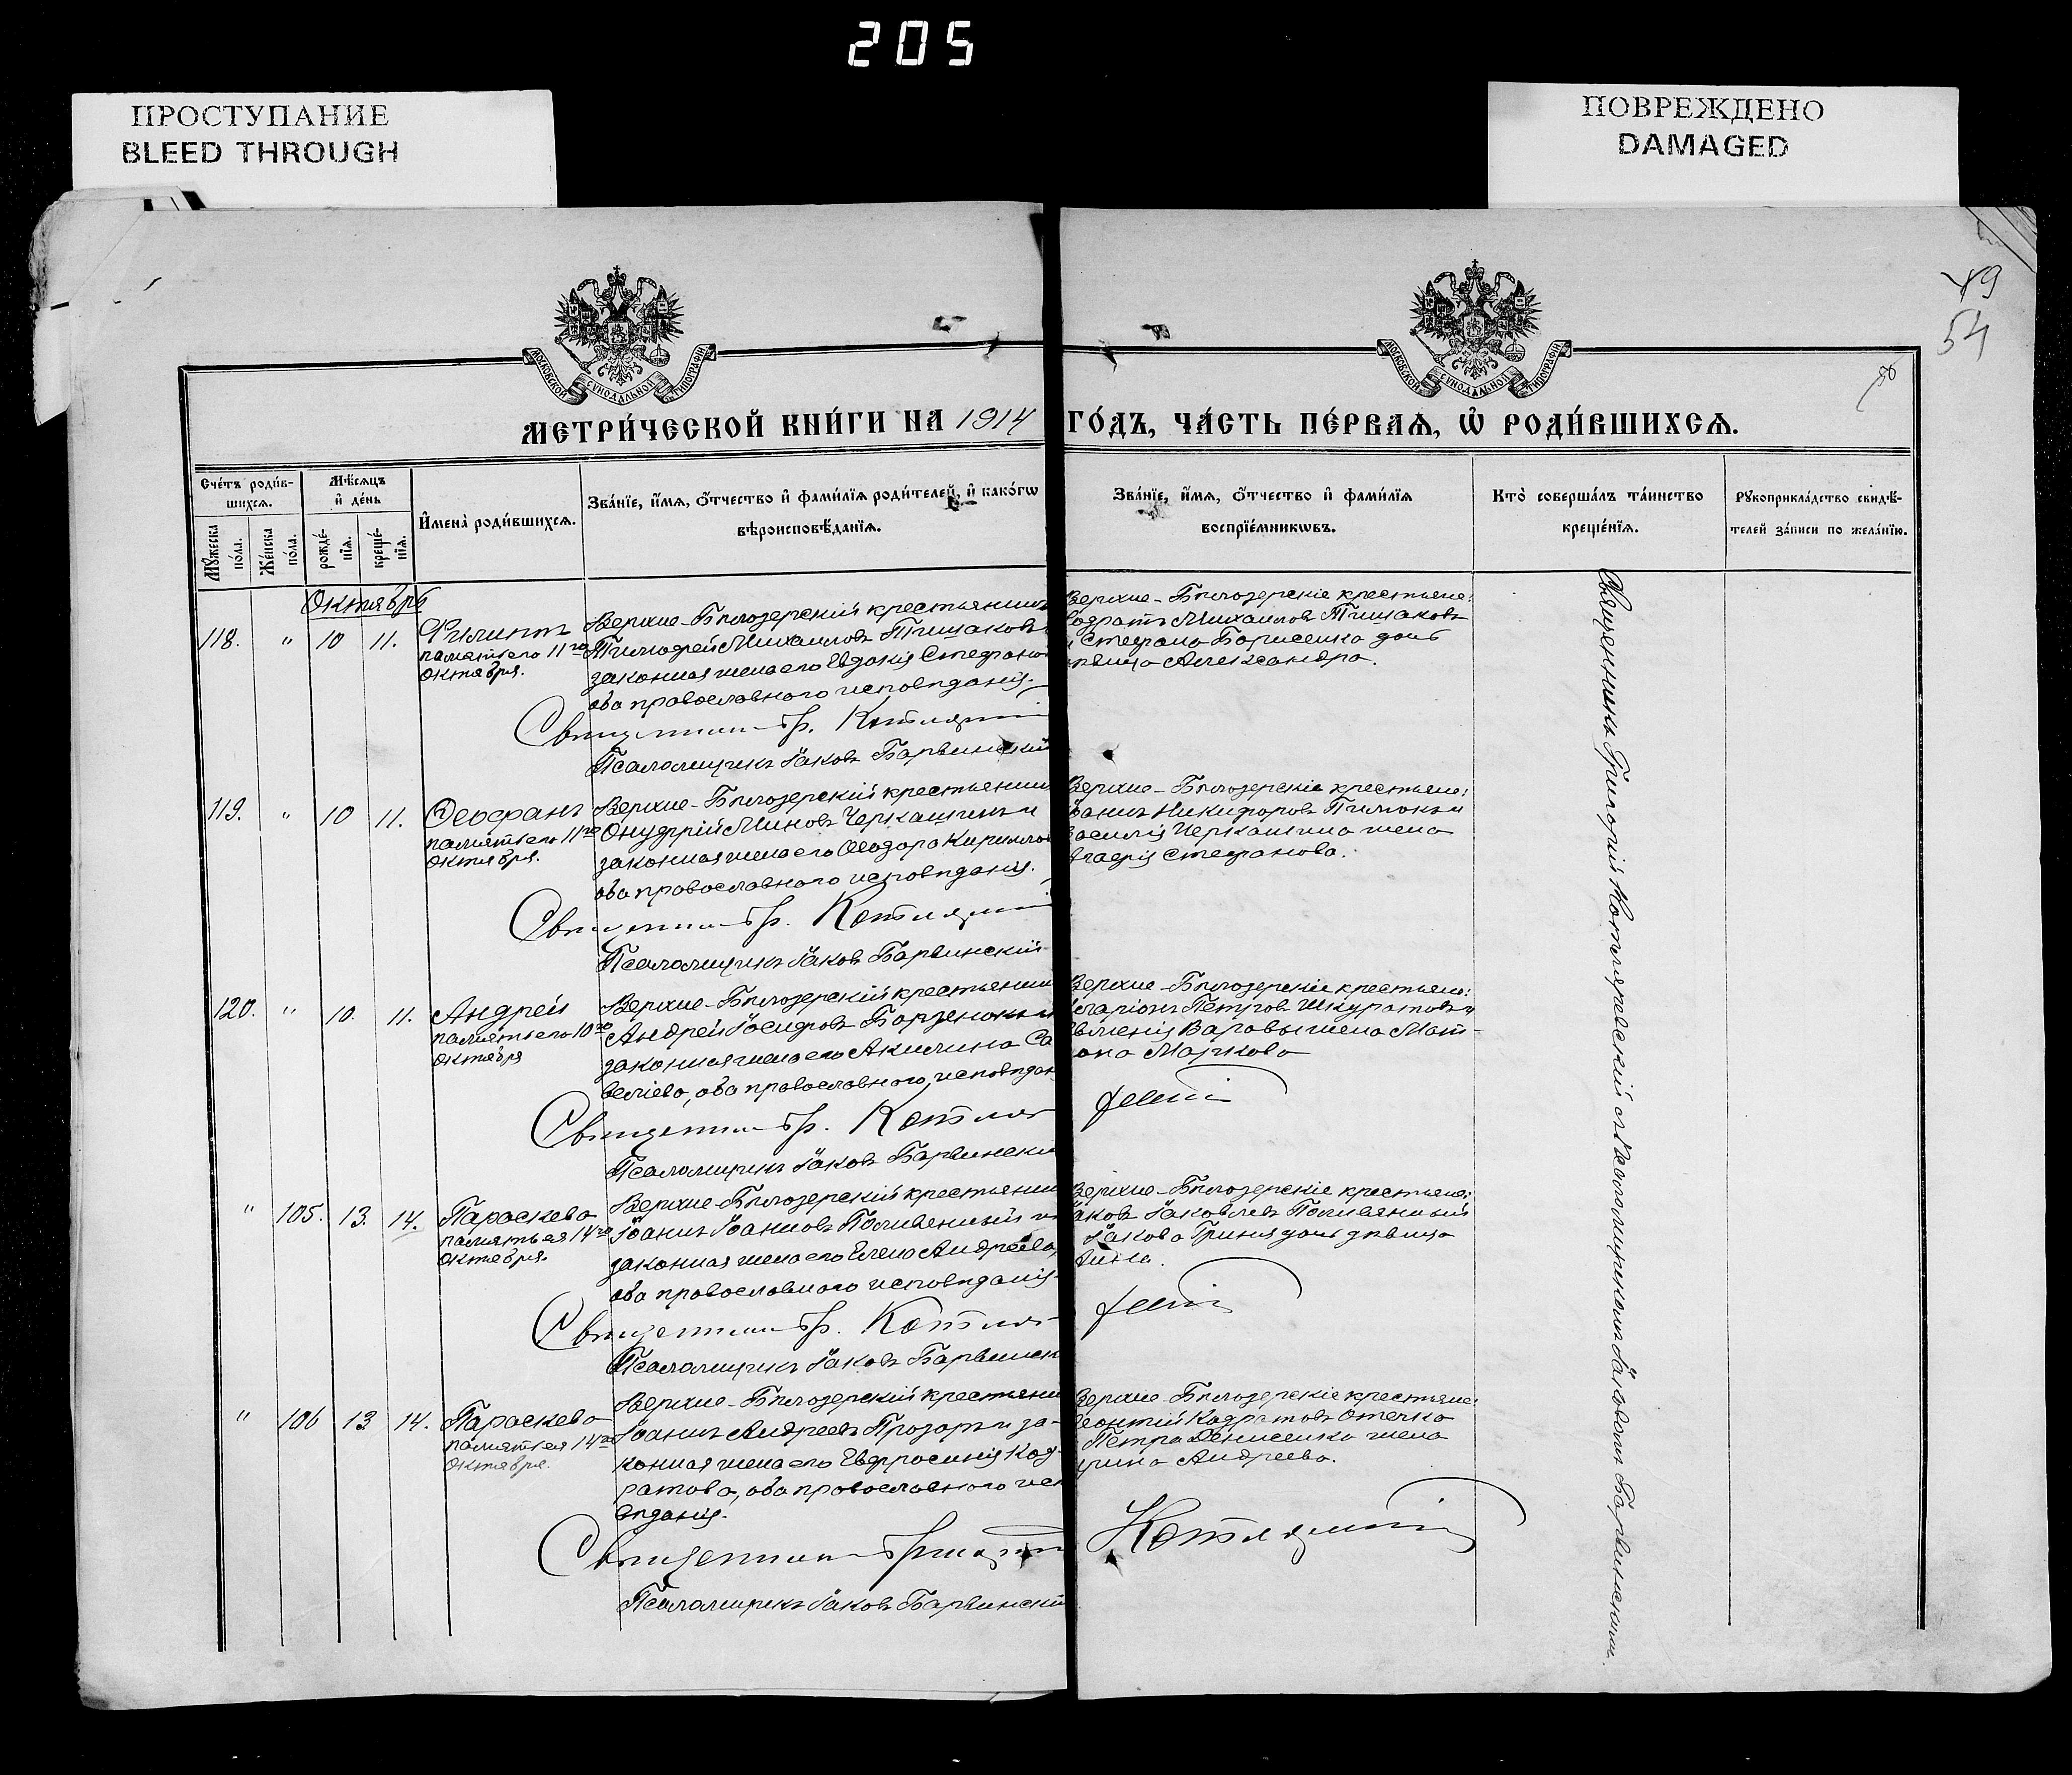 205
ПРОСТУПАНИЕ
BLEED THROUGH
ПОВРЕЖДЕНО
DAMAGED
49
54
МОСКОВСКОЙ СѴНОДАЛЬНОЙ ТИПОГРАФІИ
МОСКОВСКОЙ СѴНОДАЛЬНОЙ ТИПОГРАФІИ
МЕТРИ́ЧЕСКОЙ КНИ́ГИ НА 1914 ГО́ДЪ, ЧА́СТЬ ПЕ́РВАѦ, Ѡ҆ РОДИ́ВШИХСѦ.
Сче́тъ роди́в-
шихсѧ.
Мꙋ́жеска по́ла.
Же́нска по́ла.
Мѣ́сѧцъ
и҆ де́нь
рожде́-нїѧ.
креще́-нїѧ.
И҆мена̀ роди́вшихсѧ.
Зва́нїе, и҆́мѧ, ѻ҆́тчество и҆ фами́лїѧ роди́телей, и҆ како́гѡ
вѣроисповѣ́данїѧ.
Зва́нїе, и҆́мѧ, ѻ҆́тчество и҆ фами́лїѧ
воспрїе́мникѡвъ.
Кто̀ соверша́лъ та́инство
креще́нїѧ.
Рꙋкоприкла́дство свидѣ́-
телей за́писи по жела́нїю.
Октябрь
118. " 10 11. Филиппъ
память его 11го
октября.
Верхне-Бѣлозерскій крестьянинъ
Тимофей Михаиловъ Тишаковъ
законная жена его Евдокія Стефано
оба православнаго исповѣданія.
Священникъ Гр. Котляр
Псаломщикъ Іаковъ Барвинскій
Верхне-Бѣлозерскіе крестьяне:
одратъ Михаиловъ Тишаковъ
и Стефана Борисенко дочь
ѣвица Александра.
119. " 10 11. Ѳеофанъ
память его 11го
октября.
Верхне-Бѣлозерскій крестьянин
Онуфрій Миновъ Черкашинъ и
законная жена его Ѳеодора Кирилло
оба православнаго исповѣданія.
Священникъ Гр. Котляр
Псаломщикъ Іаковъ Барвинскій
Верхне-Бѣлозерскіе крестьяне:
оаннъ Никифоровъ Пимонъ и
Василія Черкашина жена
Агафія Стефанова.
120. " 10. 11. Андрей
память его 10го
октября
Верхне-Бѣлозерскій крестьянин
Андрей Іосифовъ Борзенокъ и
законная жена его Акилина Са
веліева, оба православнаго исповѣдан
Священникъ Гр. Котляр
Псаломщикъ Іаковъ Барвински
Верхне-Бѣлозерскіе крестьяне:
ларіонъ Петровъ Шкуратовъ и
Евменія Варавы жена Мат-
она Маркова
" 105. 13. 14. Параскева
память ея 14го
октября.
Верхне-Бѣлозерскій крестьянин
Іоаннъ Іоанновъ Поливенный и
законная жена его Елена Андреева,
оба православнаго исповѣданія.
Священникъ Гр. Котляр
Псаломщикъ Іаковъ Барвинск
Верхне-Бѣлозерскіе крестьяне:
аковъ Іаковлевъ Поливянный
Іакова Гриня дочь дѣвица
Анна.
" 106 13 14. Параскева
память ея 14го
октября.
Верхне-Бѣлозерскій крестьяни
Іоаннъ Андреевъ Прозоръ и за-
конная жена его Евфросинія Код-
ратова, оба православнаго исп
вѣданія.
Священникъ Григорій
Псаломщикъ Іаковъ Барвинскій
Верхне-Бѣлозерскіе крестьяне:
Леонтій Кодратовъ Отечко
Петра Денисенко жена
рина Андреева.
Котляр
Священникъ Григорій Котляревскій съ псаломщикомъ Іаковомъ Барвинскимъ.